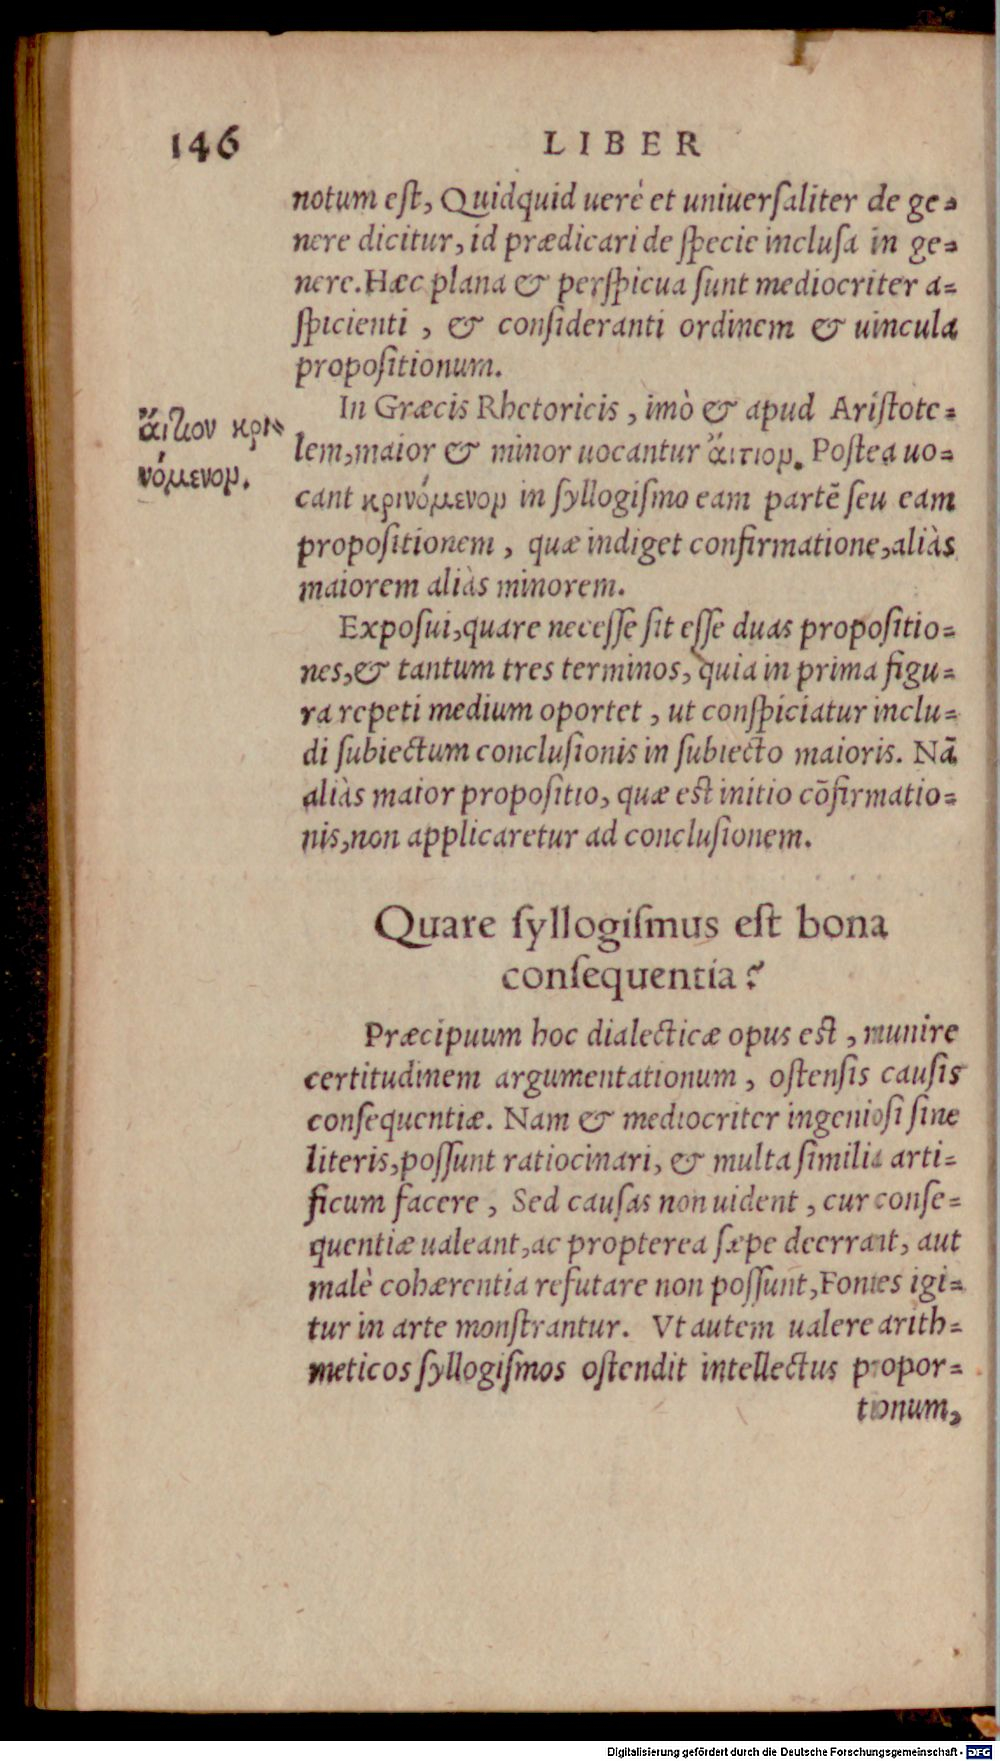 146 LIBER
notum eſt, Quidquid uerè et uniuerſaliter de ge-
nere dicitur, id prædicari de ſpecie incluſa in ge-
nere. Hæc plana & perſpicua ſunt mediocriter a-
ſpicienti , & conſideranti ordinem & uincula
propoſitionum.
In Græcis Rhetoricis , imò & apud Ariſtote-
lem, maior & minor uocantur ἄιτιον. Poſtea uo-
cant κρινόμενον in ſyllogiſmo eam partē ſeu eam
propoſitionem , quæ indiget confirmatione, aliàs
maiorem aliàs minorem.
ἄιτιον κρι-
νόμενον.
Expoſui, quare neceſſe ſit eſſe duas propoſitio-
nes, & tantum tres terminos, quia in prima figu-
ra repeti medium oportet , ut conſpiciatur inclu-
di ſubiectum concluſionis in ſubiecto maioris. Nā
aliàs maior propoſitio, quæ est initio cōfirmatio-
nis, non applicaretur ad concluſionem.
Quare ſyllogiſmus eſt bona
conſequentia?
Præcipuum hoc dialecticæ opus est , munire
certitudinem argumentationum , oſtenſis cauſis
conſequentiæ. Nam & mediocriter ingenioſi ſine
literis, poſſunt ratiocinari, & multa ſimilia arti-
ficum facere , Sed cauſas non uident , cur conſe-
quentiæ ualeant, ac propterea ſæpe deerrant, aut
malè cohærentia refutare non poſſunt, Fontes igi-
tur in arte monſtrantur. Vt autem ualere arith-
meticos ſyllogiſmos oſtendit intellectus propor-
tionum,
Digitalisierung gefördert durch die Deutsche Forschungsgemeinschaft - DFG